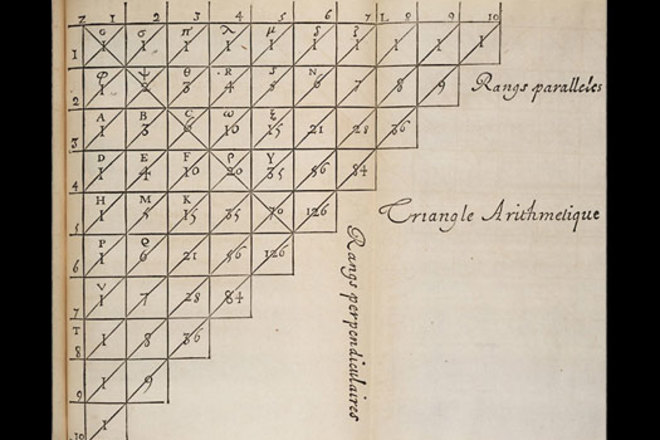 Z 1 2 3 4 5 6 7 L 8 9 10
σ π λ μ
1 1 1 1 1 1 1 1 1 1 1
φ ψ θ R S N
2 1 2 3 4 5 6 7 8 9
Rangs paralleles
A B C ω ξ
3 1 3 6 10 15 21 28 36
D E F ρ Y
4 1 4 10 20 35 56 84
Triangle Arithmetique
H M K
5 1 5 15 35 70 126
P Q
6 1 6 21 56 126
Rangs perpendiculaires
V
7 1 7 28 84
T
8 1 8 36
9 1 9
10 1